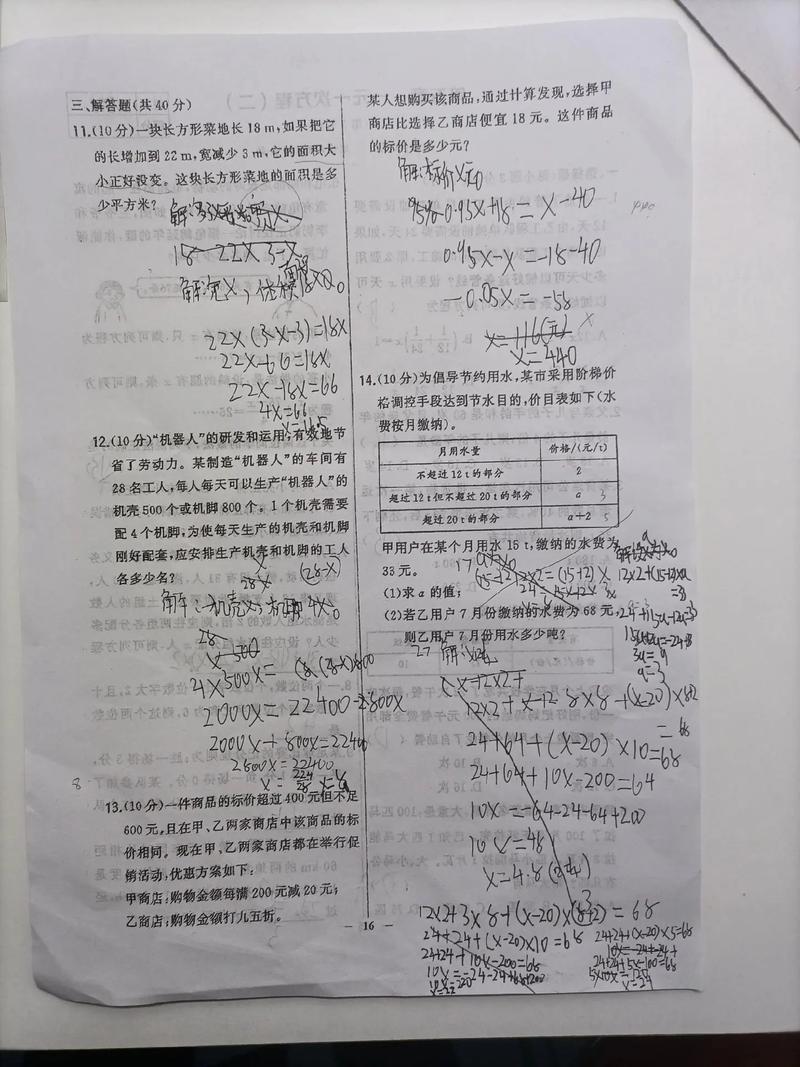 三、解答题(共40分)
11.(10分)一块长方形菜地长18 m,如果把它
的长增加到22 m,宽减少3 m,它的面积大
小正好没变。这块长方形菜地的面积是多
少平方米?
22X(3-X-3)=18X
22X-66=18X
22X-18X=66
4X=66
X=16.5
12.(10分)“机器人”的研发和运用,有效地节
省了劳动力。某制造“机器人”的车间有
28名工人,每人每天可以生产“机器人”的
机壳500个或机脚800个。1个机壳需要
配4个机脚,为使每天生产的机壳和机脚
刚好配套,应安排生产机壳和机脚的工人
各多少名?
(28-X)
2000X=22400-2800X
2000X+800X=22400
2800X=22400
8
13.(10分)一件商品的标价超过400元但不足
600元,且在甲、乙两家商店中该商品的标
价相同。现在甲、乙两家商店都在举行促
销活动,优惠方案如下:
甲商店:购物金额每满200元减20元;
乙商店:购物金额打九五折。
某人想购买该商品,通过计算发现,选择甲
商店比选择乙商店便宜18元。这件商品
的标价是多少元?
0.95X+18=X-40
0.95X-X=-18-40
-0.05X=-58
X=116(元)
X=440
14.(10分)为倡导节约用水,某市采用阶梯价
格调控手段达到节水目的,价目表如下(水
费按月缴纳)。
月用水量 价格/(元/t)
不超过12 t的部分 2
超过12 t但不超过20 t的部分 a 3
超过20 t的部分 a+2 5
甲用户在某个月用水15 t,缴纳的水费为
33元。
(1)求a的值;
(2)若乙用户7月份缴纳的水费为68元,
则乙用户7月份用水多少吨?
3a=9
a=3
24+64+(X-20)×10=68
24+64+10X-200=64
10X=-64-24-64+200
10X=48
X=4.8
12×2+3×8+(X-20)×(8+2)=68
24+24+(X-20)×10=68
24+24+10X-200=68
10X=220
X=22
24+24+(X-20)×5=68
24+24+5X-100=68
X=24
— 16 —